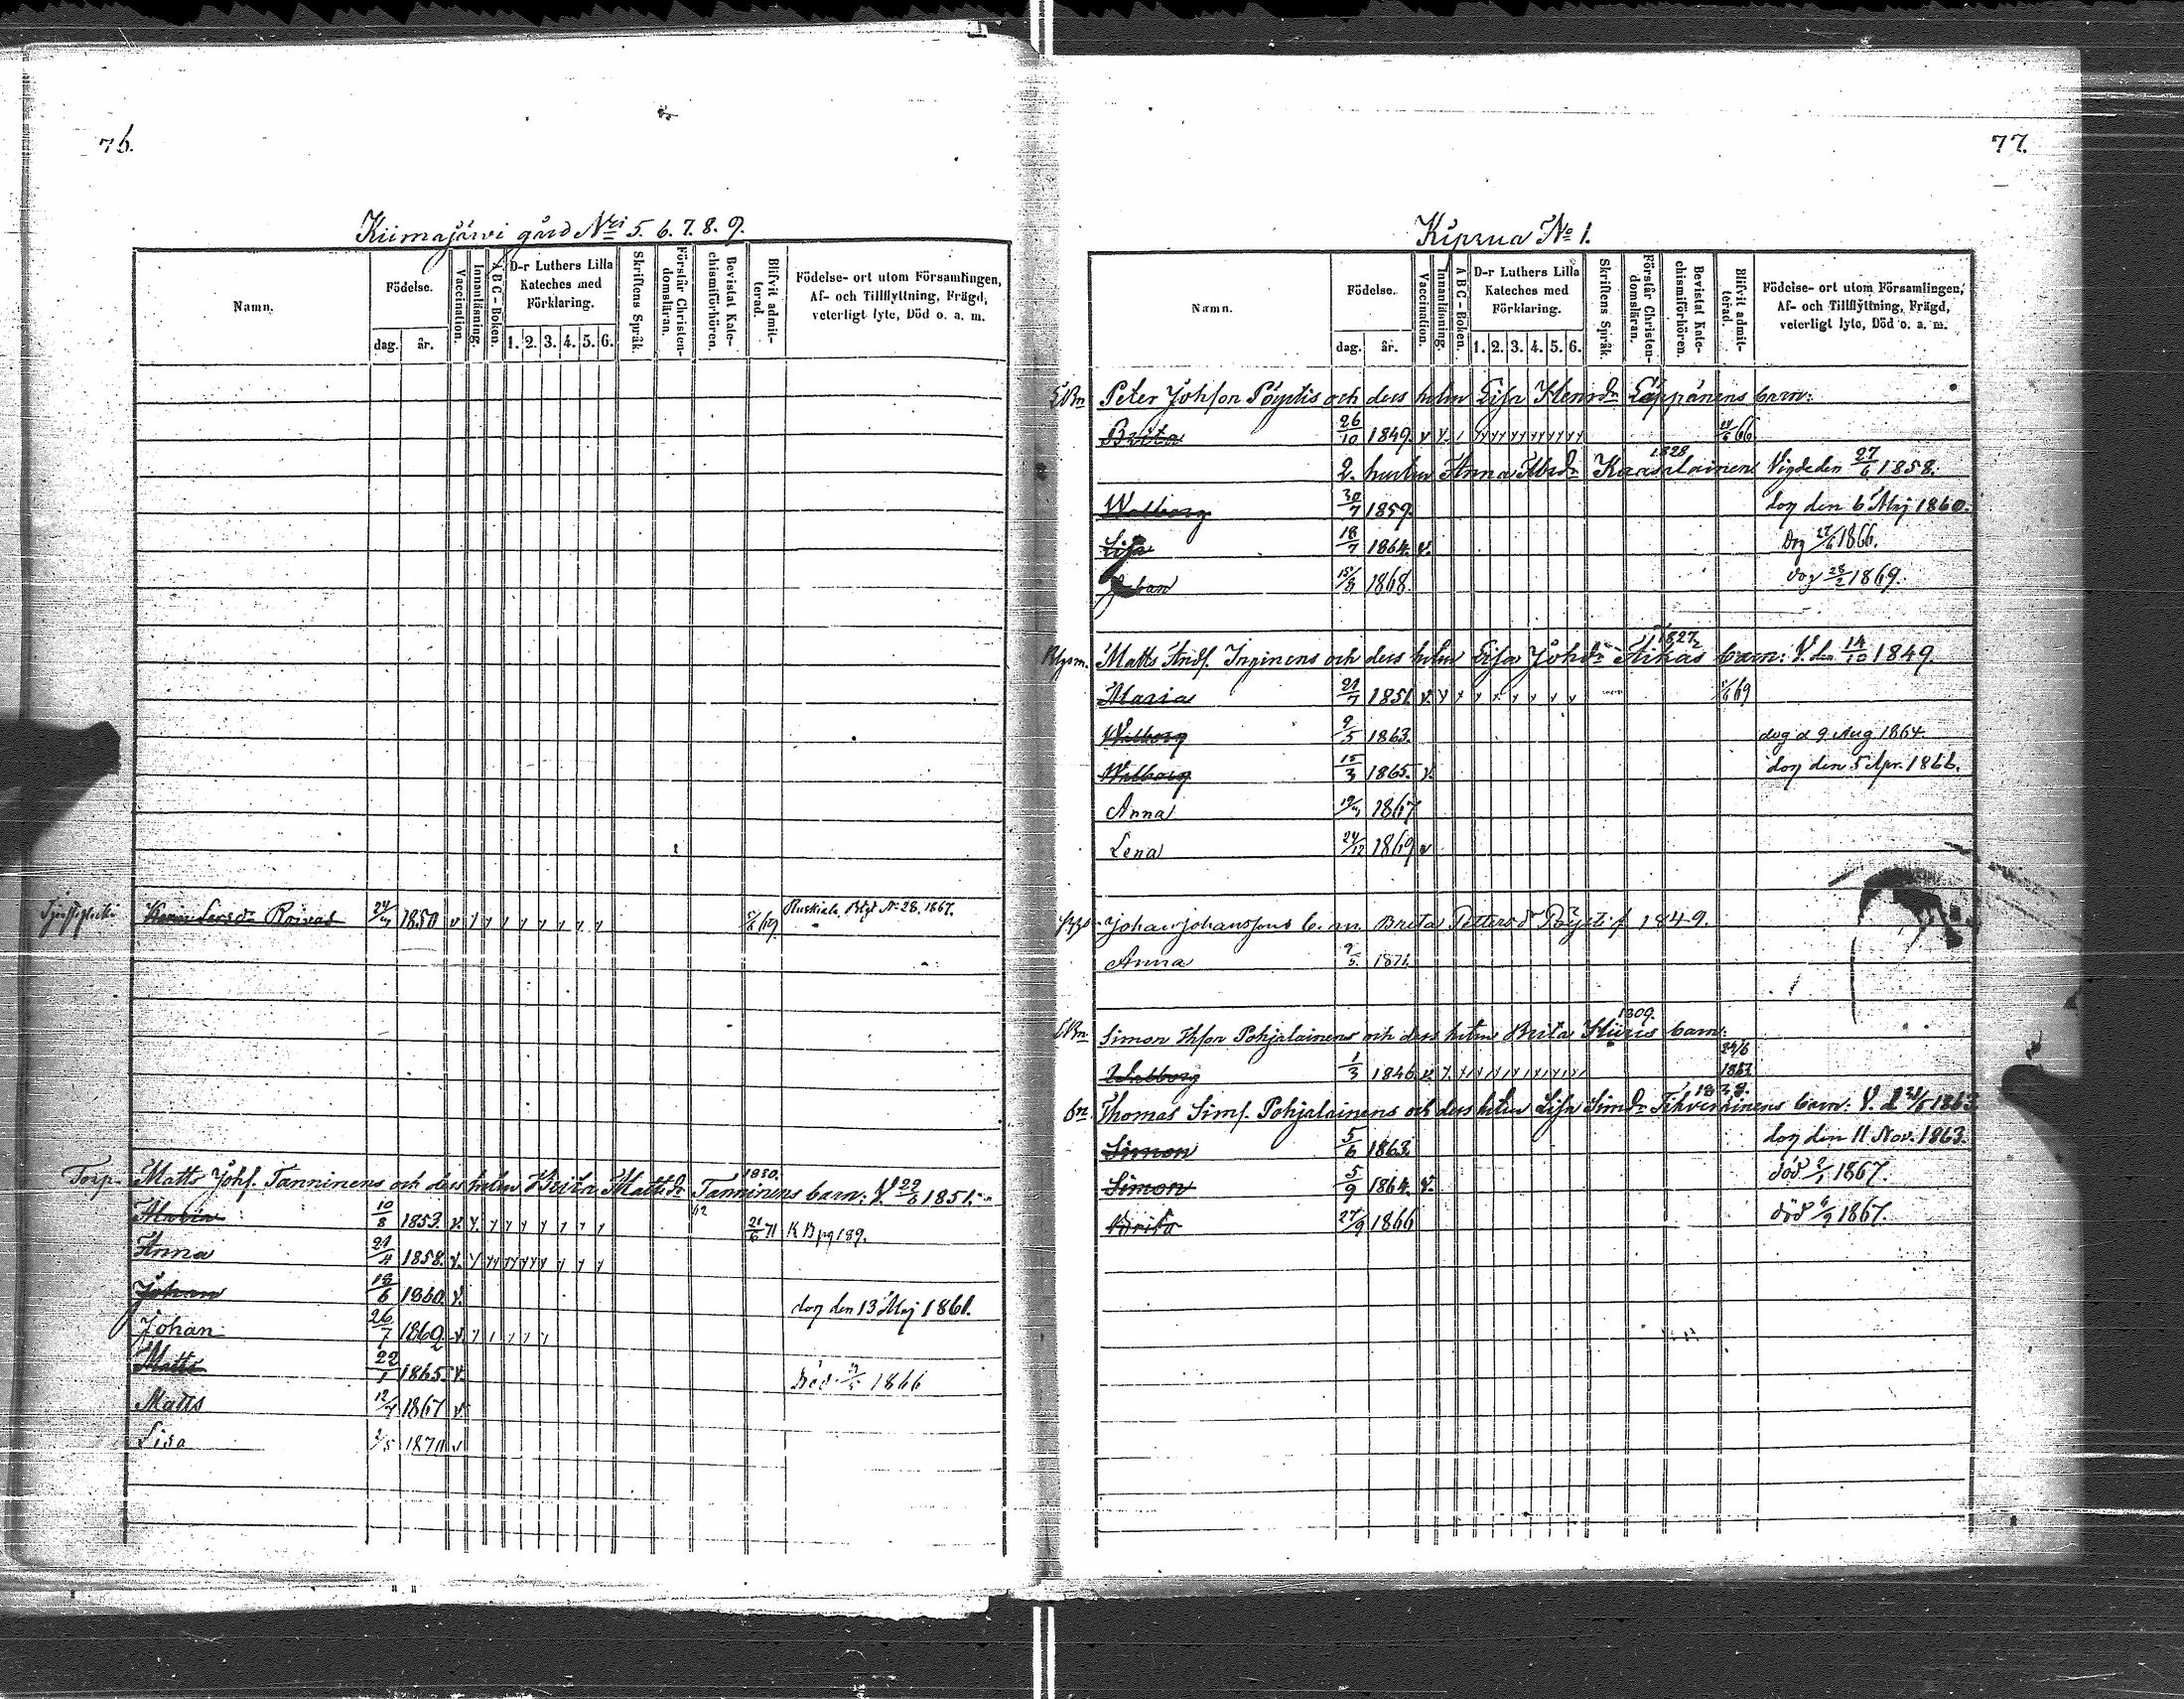 76.
Kiimajärvi gård Nri 5. 6. 7. 8. 9.
Namn.
Födelse.
dag.
år.
Vaccination.
Innanläsning.
A B C - Boken.
D-r Luthers Lilla
Kateches med
Förklaring.
1. 2. 3. 4. 5. 6.
Skriftens Språk.
Förstår Christen-
domsläran.
Bevistat Kate-
chismiförhören.
Blifvit admit-
terad.
Födelse- ort utom Församlingen,
Af- och Tillflyttning, Frägd,
veterligt lyte, Död o. a. m.
Roivas 24/ 1850 v /69 Ruskiala Btyt No 28, 1867.
Torp. Matts Johs. Tanninens och dess hstru Brita Mattsdr 1830. Tanninens barn: V. 29/6 1851.
62
Maria 10/8 1853. v. 21/6 71 K B pg 189.
Anna 21/11 1858. v.
Johan 18/6 1860. v. dog den 13 Maj 1861.
Johan 26/7 1862 v.
Matts 22/1 1865 v. Död 1866
Matts 12/4 1867 v.
Lisa 2/5 1870 v
77.
Kiprua No 1.
Namn.
Födelse.
dag.
år.
Vaccination.
Innanläsning.
A B C - Boken.
D-r Luthers Lilla
Kateches med
Förklaring.
1. 2. 3. 4. 5. 6.
Skriftens Språk.
Förstår Christen-
domsläran.
Bevistat Kate-
chismiförhören.
Blifvit admit-
terad.
Födelse- ort utom Församlingen,
Af- och Tillflyttning, Frägd,
veterligt lyte, Död o. a. m.
Peter Johsson Pöystis och dess hstru Lisa Henrdr Läppänens barn:
Brita 26/10 1849. v /66
2. hustru Anna 1828 Kaasalainen Vigde den 27/6 1858.
Walborg 30/7 1859. dog den 6 Maj 1860.
Lisa 18/7 1864. v. Dog 27/6 1866.
Johan 15/8 1868. dog 28/2 1869.
Matts Ands. Inginens och dess hstru Lisa Johsdr 1827. Aikäs barn: V. den 14/10 1849.
Maria 21/7 1851. v. /69
Walborg 9/5 1863. dog d 9 Aug 1864.
Walborg 15/3 1865. v. dog den 5 Apr. 1866.
Anna 1867
Lena 24/12 1869 v
Johan Johanssons b. m. Brita Pettersdr Pöysti f. 1849.
Anna 1871.
Simon Thsson Pohjalainens och dess hstru Brita 1809. Hiiris barn:
Walborg 1/3 1846. v. 24/6 1863
Thomas Sims. Pohjalainens och dess hstru Lisa Simdr 1838. Tikverainens barn: V. d 1863
Simon 5/6 1863. dog den 11 Nov. 1863.
Simon 5/9 1864. v. död 1867.
Brita 27/9 1866 död 6/9 1867.